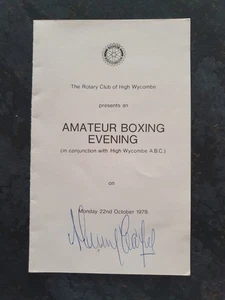 The Rotary Club of High Wycombe
presents an
AMATEUR BOXING
EVENING
(in conjunction with High Wycombe A.B.C.)
on
Monday 22nd October 1979.